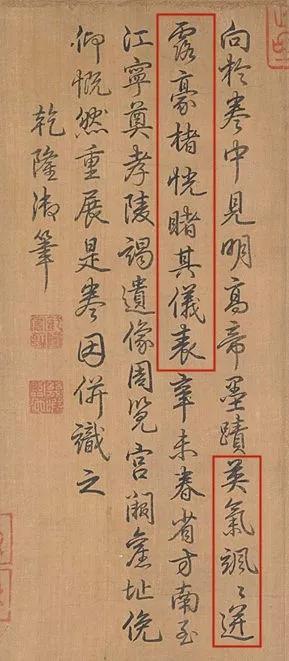 向於卷中見明高帝墨蹟英氣颯〻迸
露豪楮恍睹其儀表辛未春省方南至
江寧奠孝陵謁遺像周覽宮闕舊址俛
仰慨然重展是卷因併識之
乾隆御筆